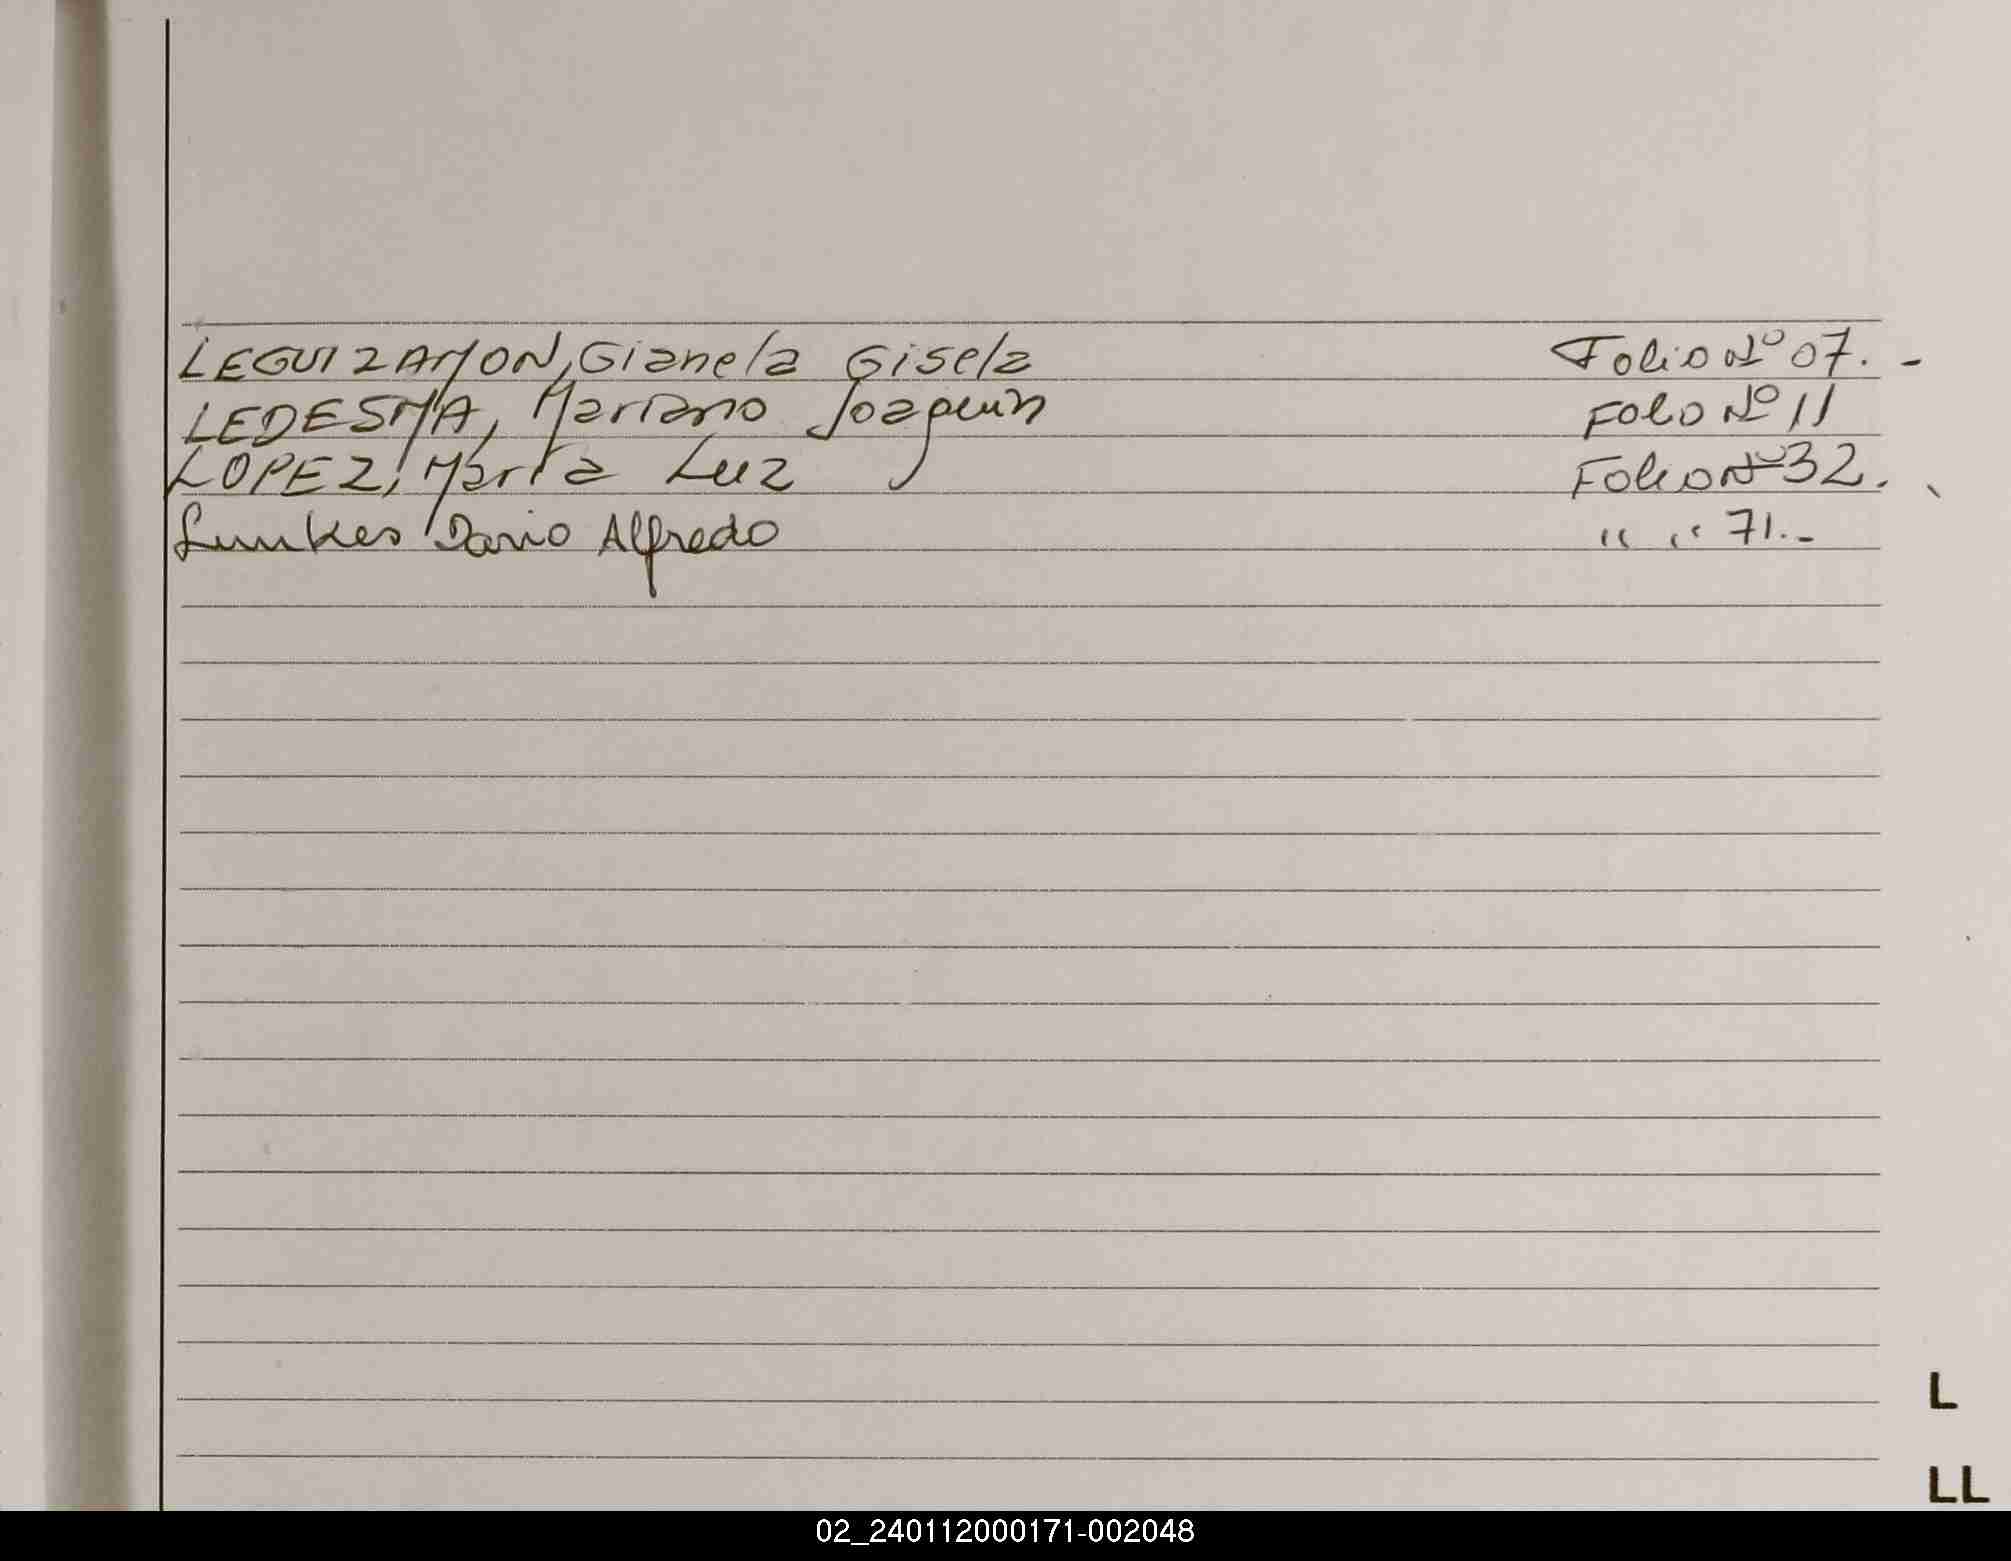 LEGUIZAMON, Gianela Gisela Folio Nº 07.-
LEDESMA, Mariano Joaquin Folo Nº 11
LOPEZ, Maria Luz Folio Nº 32.
Lunkes Dario Alfredo " " 71.-
L
LL
02_240112000171-002048